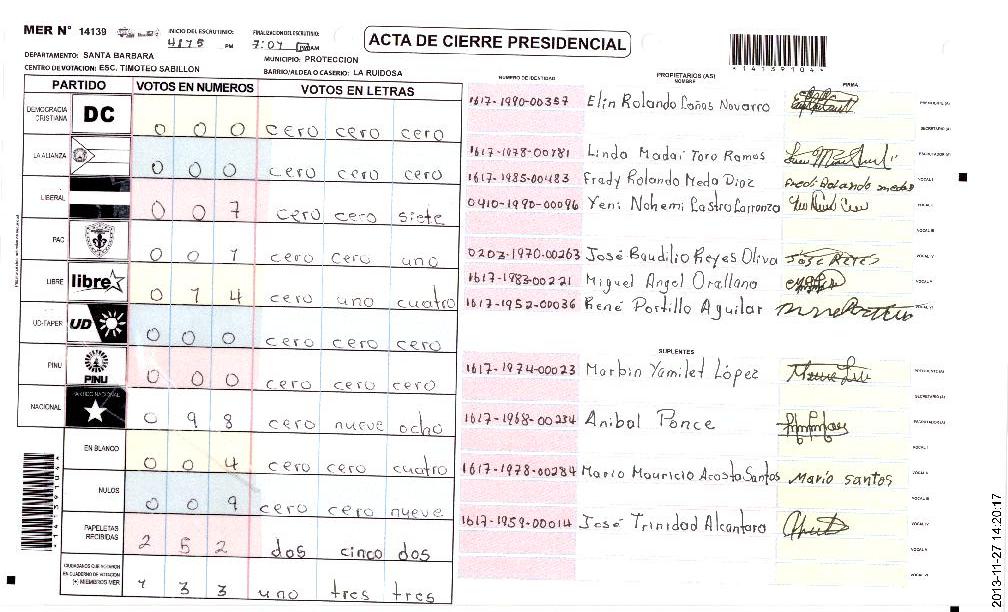 MER N° 14139
INICIO DEL ESCRUTINIO: 4:15 PM
FINALIZACION DEL ESCRUTINIO: 7:07
ACTA DE CIERRE PRESIDENCIAL
*14139104*
DEPARTAMENTO: SANTA BARBARA
MUNICIPIO: PROTECCION
CENTRO DE VOTACION: ESC. TIMOTEO SABILLON
BARRIO/ALDEA O CASERIO: LA RUIDOSA
PARTIDO VOTOS EN NUMEROS VOTOS EN LETRAS
DEMOCRACIA CRISTIANA DC 0 0 0 cero cero cero
LA ALIANZA 0 0 0 cero cero cero
LIBERAL 0 0 7 cero cero siete
PAC 0 0 1 cero cero uno
LIBRE libre 0 1 4 cero uno cuatro
UD-FAPER UD 0 0 0 cero cero cero
PINU PINU 0 0 0 cero cero cero
NACIONAL PARTIDO NACIONAL 0 9 8 cero nueve ocho
EN BLANCO 0 0 4 cero cero cuatro
NULOS 0 0 9 cero cero nueve
PAPELETAS RECIBIDAS 2 5 2 dos cinco dos
CIUDADANOS QUE VOTARON EN CUADERNO DE VOTACION (+) MIEMBROS MER 1 3 3 uno tres tres
NUMERO DE IDENTIDAD PROPIETARIOS (AS) NOMBRE FIRMA
1617-1990-00357 Elin Rolando Lañas Navarro PRESIDENTE (A)
SECRETARIO (A)
1617-1978-00781 Linda Madai Toro Ramos ESCRUTADOR (A)
1617-1985-00483 Fredy Rolando Meda Diaz VOCAL I
0410-1990-00096 Yeni Nohemi Castro Carranza VOCAL II
VOCAL III
0203-1970-00263 José Baudilio Reyes Oliva JOSE REYES VOCAL IV
1617-1983-00221 Miguel Angel Orallano VOCAL V
1617-1952-00036 René Portillo Aguilar VOCAL VI
SUPLENTES
1617-1974-00023 Marbin Yamilet López PRESIDENTE (A)
SECRETARIO (A)
1617-1968-00234 Anibal Ponce ESCRUTADOR (A)
VOCAL I
1617-1978-00284 Mario Mauricio Acosta Santos Mario santos VOCAL II
VOCAL III
1617-1959-00014 José Trinidad Alcantara VOCAL IV
VOCAL V
VOCAL VI
*14139104*
2013-11-27 14:20:17